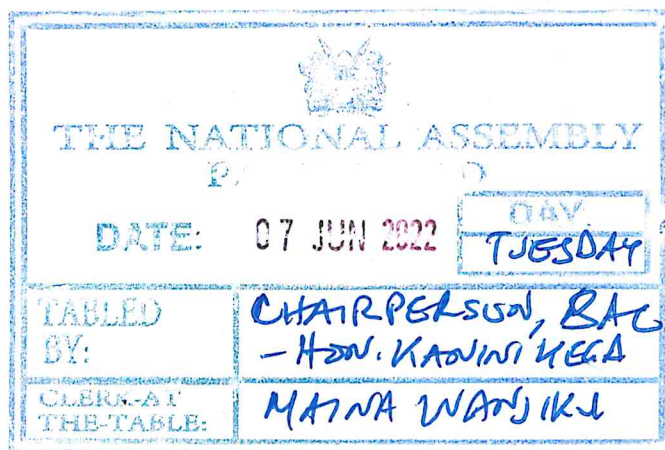 THE NATIONAL ASSEMBLY
DATE: 07 JUN 2022
DAY
TUESDAY
TABLED BY:
CHAIRPERSON, BAC
- HON. KANINI KEGA
CLERK-AT THE-TABLE:
MAINA WANJIKU